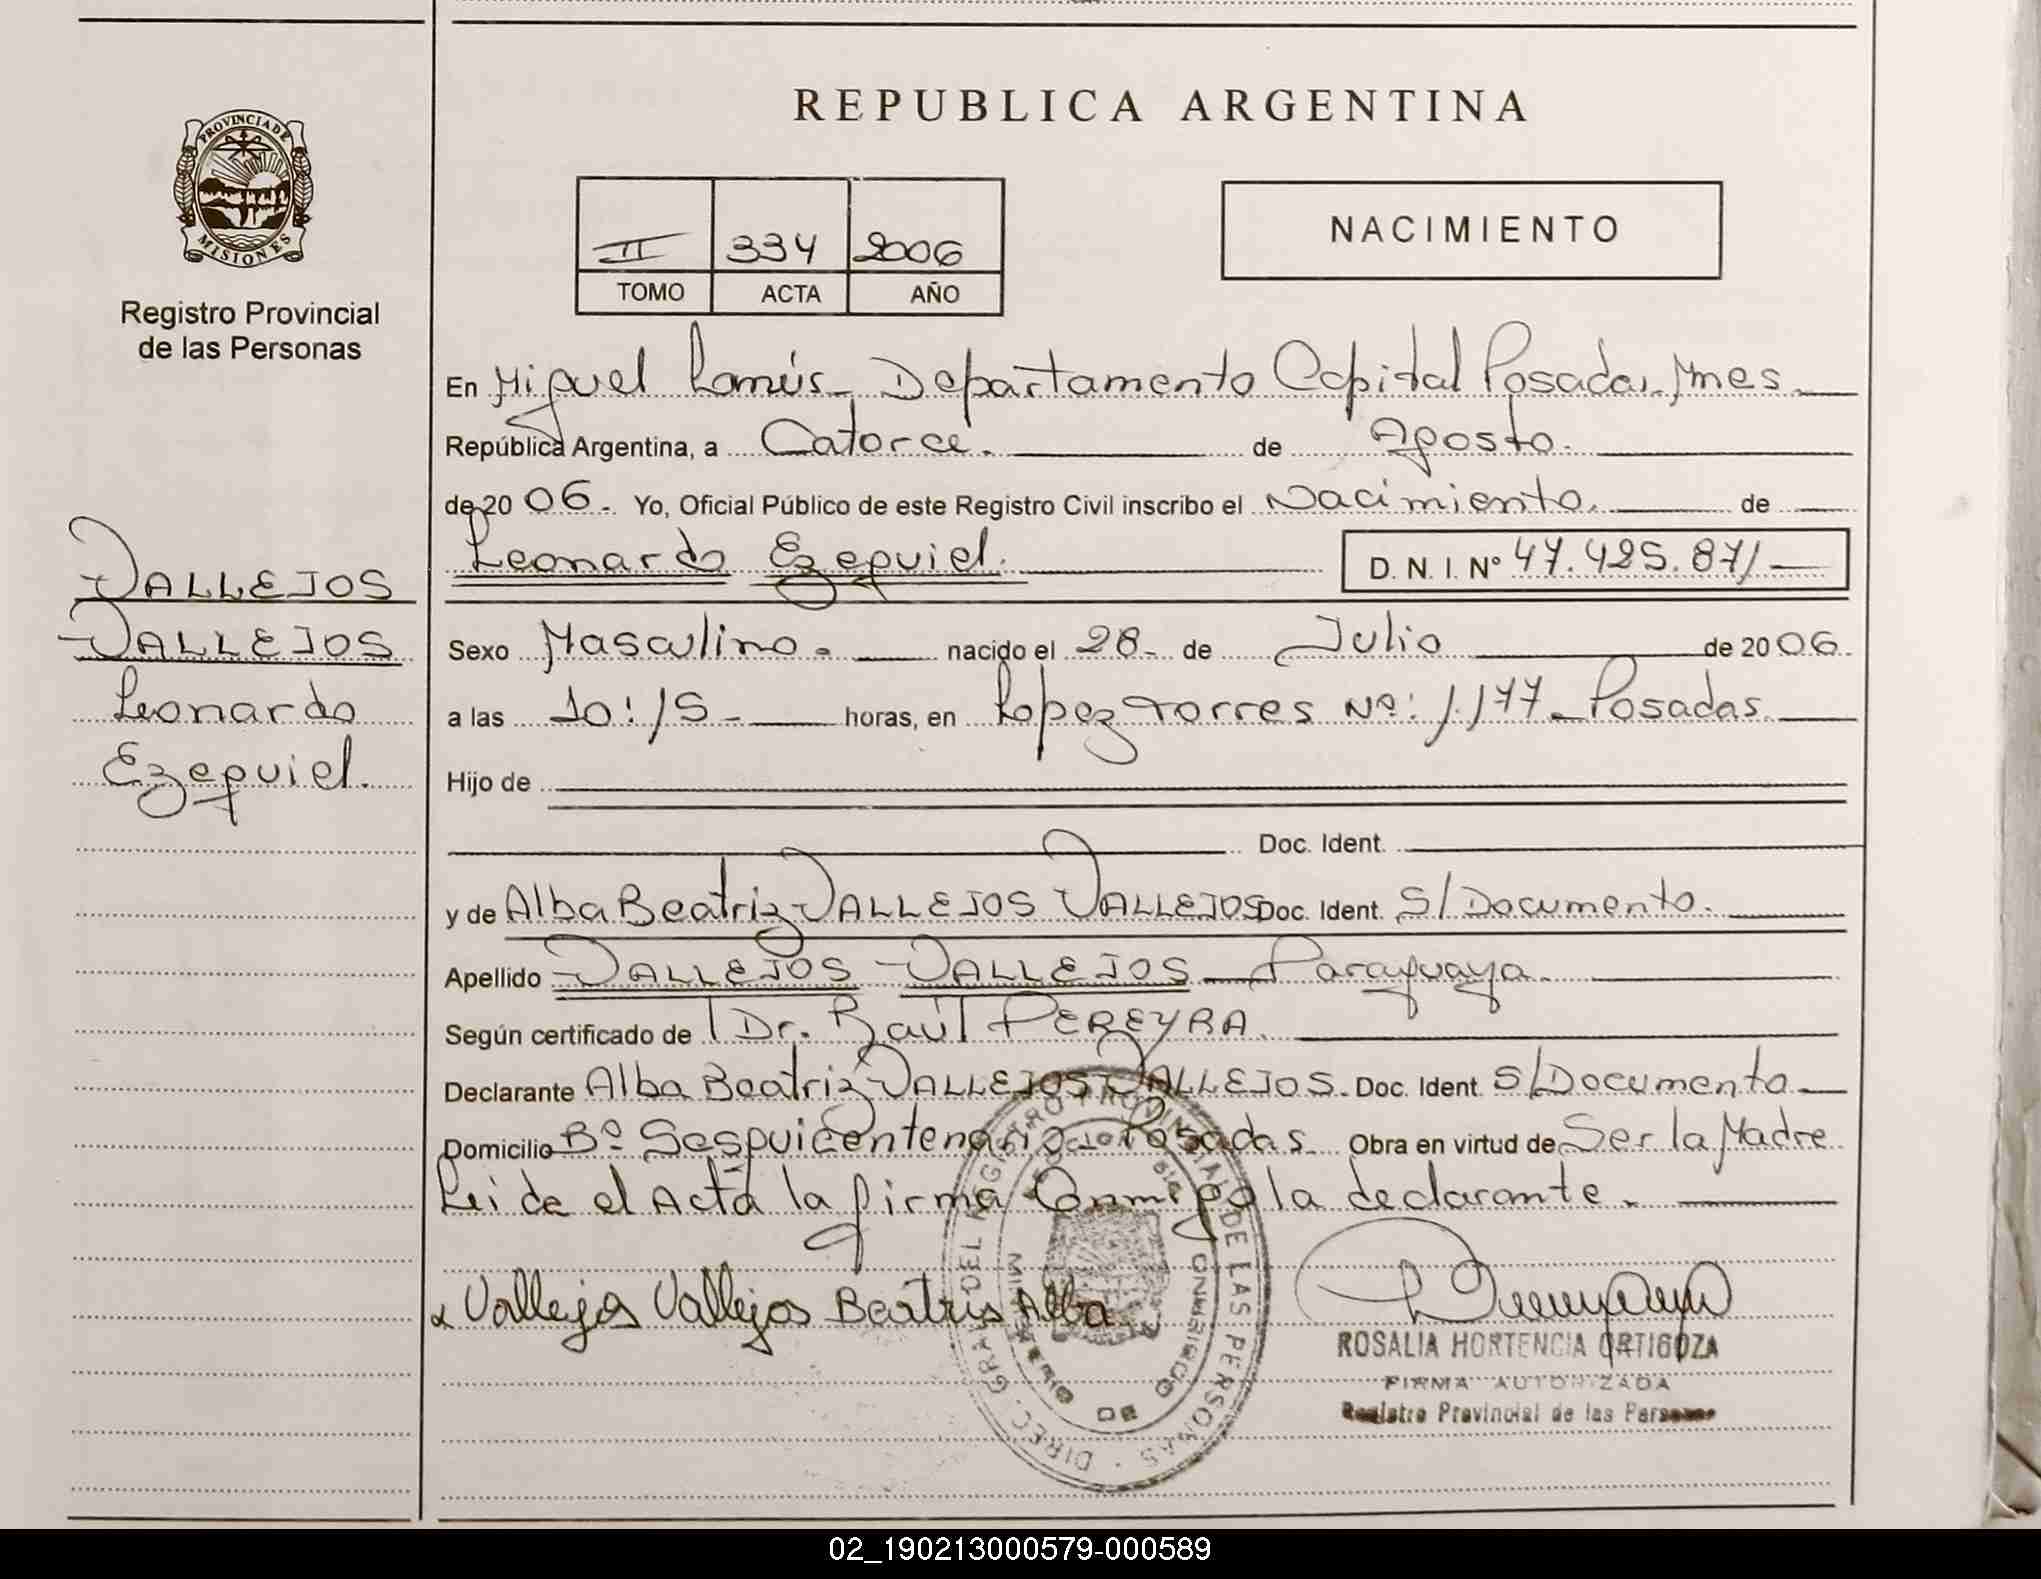 PROVINCIA DE
MISIONES
Registro Provincial
de las Personas
VALLEJOS
VALLEJOS
Leonardo
Ezequiel.
REPUBLICA ARGENTINA
II 334 2006
TOMO ACTA AÑO
NACIMIENTO
En Miguel Lanús- Departamento Capital Posadas Mnes
República Argentina, a Catorce. de Agosto.
de 20 06. Yo, Oficial Público de este Registro Civil inscribo el Nacimiento de
Leonardo Ezequiel. D. N. I. Nº 47.425.871
Sexo Masculino. nacido el 28- de Julio de 20 06.
a las 10:15- horas, en Lopez Torres Nº: 1.177- Posadas
Hijo de
Doc. Ident.
y de Alba Beatriz VALLEJOS VALLEJOS Doc. Ident. S/Documento.
Apellido VALLEJOS VALLEJOS Paraguaya
Según certificado de Dr. Raúl PEREYRA.
Declarante Alba Beatriz VALLEJOS VALLEJOS. Doc. Ident. S/Documento
Domicilio Bº Sesquicentenario- Posadas Obra en virtud de Ser la Madre
Leida el Acta la firma Conmigo la declarante.
x Vallejos Vallejos Beatris Alba
DIREC. GRAL. DEL REGISTRO PROVINCIAL DE LAS PERSONAS
MISIONES
ROSALIA HORTENCIA ORTIGOZA
FIRMA AUTORIZADA
Registro Provincial de las Personas
02_190213000579-000589